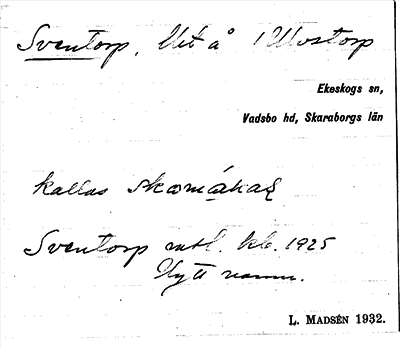 Sventorp, Ut å Ulvstorp
Ekeskogs sn,
Vadsbo hd, Skaraborgs län
kallas
Sventorp enl. kb. 1925
Nytt namn.
L. MADSÉN 1932.